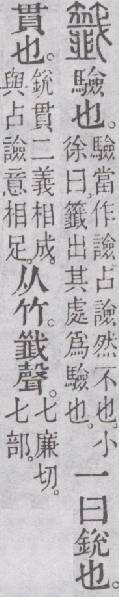 籤驗也。驗當作譣占譣然不也。小徐曰籤出其處爲驗也。一曰銳也。
貫也。銳貫二義相成。與占譣意相足。从竹。韱聲。七廉切。七部。